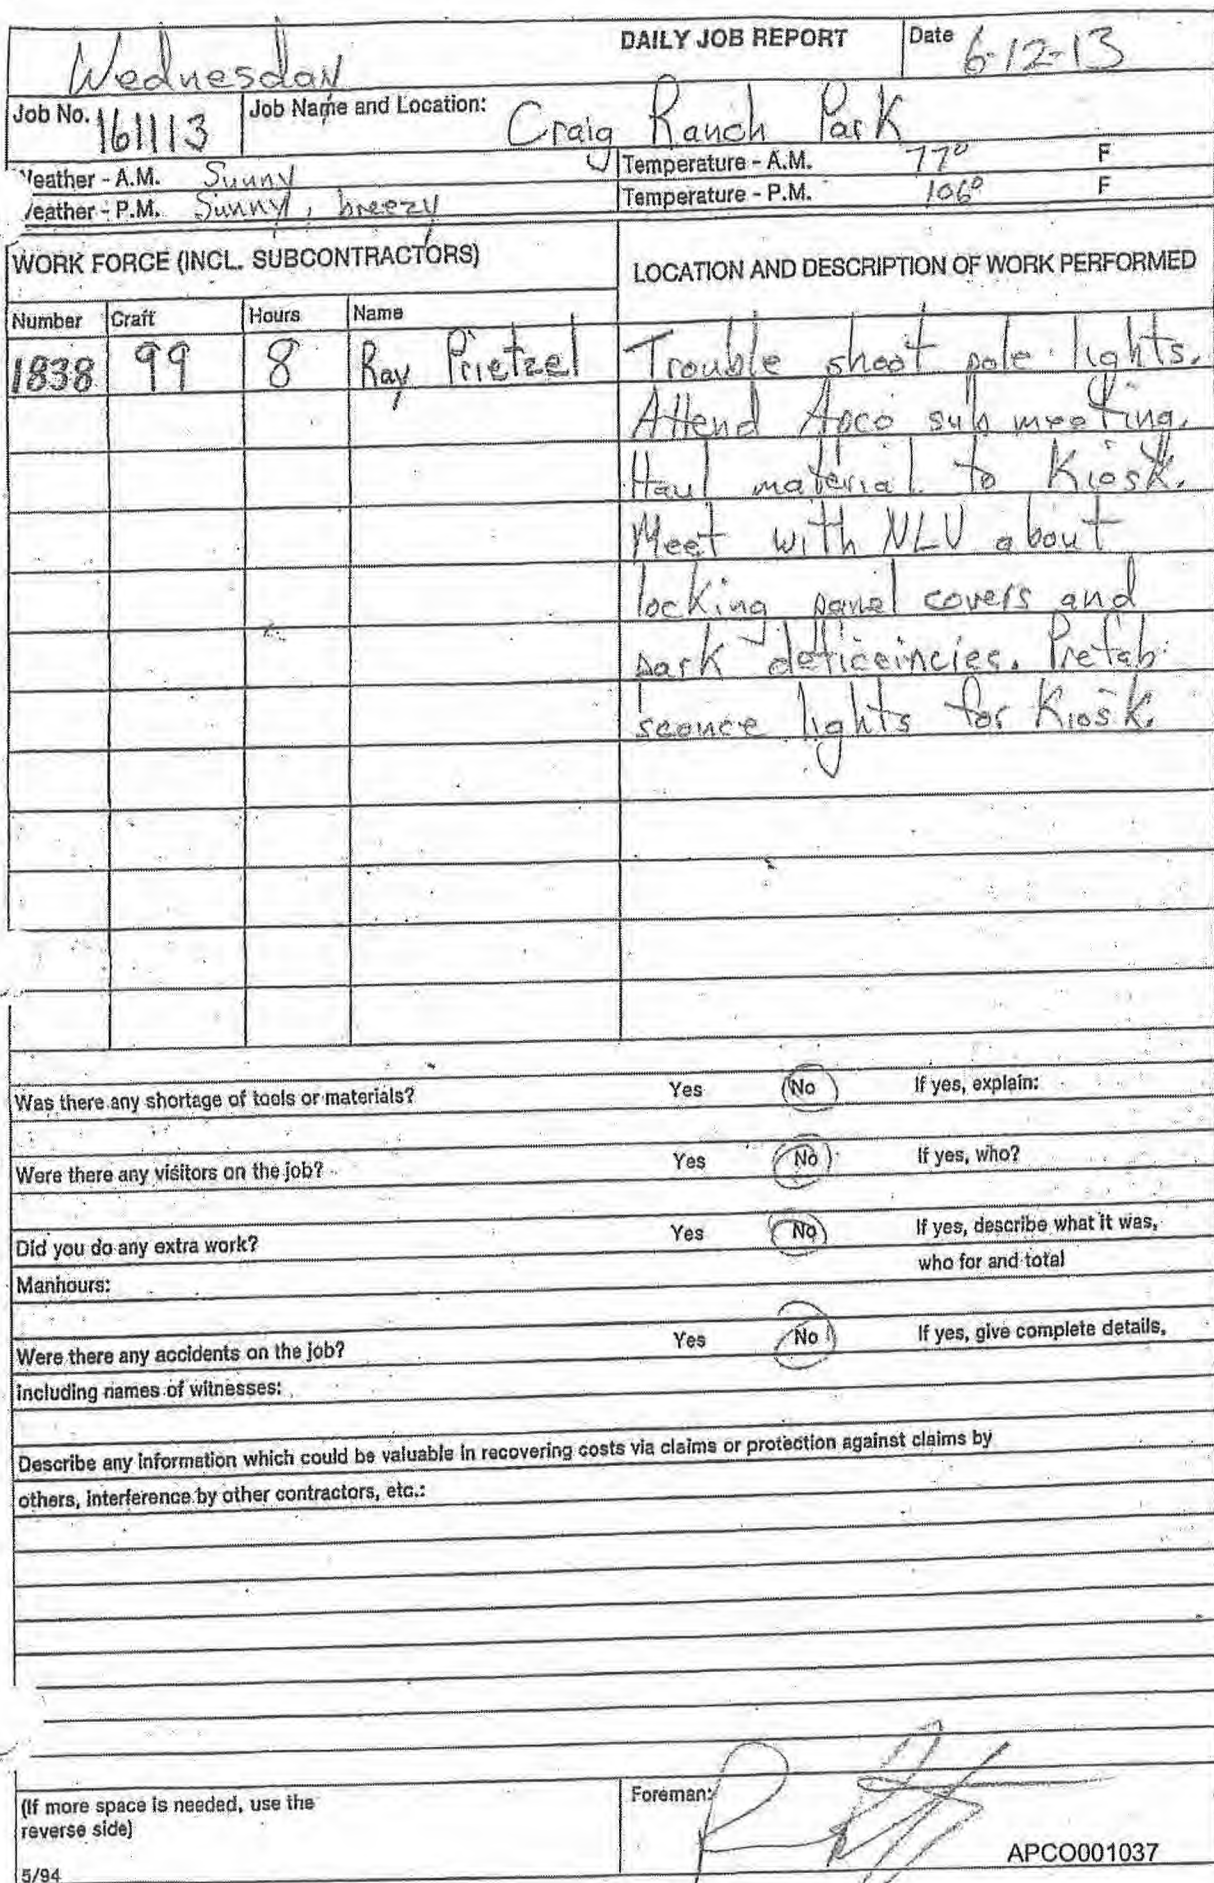 Wednesday DAILY JOB REPORT Date 6-12-13
Job No. 161113 Job Name and Location: Craig Ranch Park
Weather - A.M. Sunny Temperature - A.M. 77° F
Weather - P.M. Sunny, breezy Temperature - P.M. 106° F
WORK FORCE (INCL. SUBCONTRACTORS) LOCATION AND DESCRIPTION OF WORK PERFORMED
Number Craft Hours Name
1838 99 8 Ray Prietzel Trouble shoot pole lights.
Attend Apco sub meeting.
Haul material to Kiosk.
Meet with NLV about
locking panel covers and
park deficeincies. Prefab
sconce lights for Kiosk.
Was there any shortage of tools or materials? Yes No If yes, explain:
Were there any visitors on the job? Yes No If yes, who?
Did you do any extra work? Yes No If yes, describe what it was,
who for and total
Manhours:
Were there any accidents on the job? Yes No If yes, give complete details,
including names of witnesses:
Describe any information which could be valuable in recovering costs via claims or protection against claims by
others, interference by other contractors, etc.:
(If more space is needed, use the
reverse side)
Foreman:
APCO001037
5/94